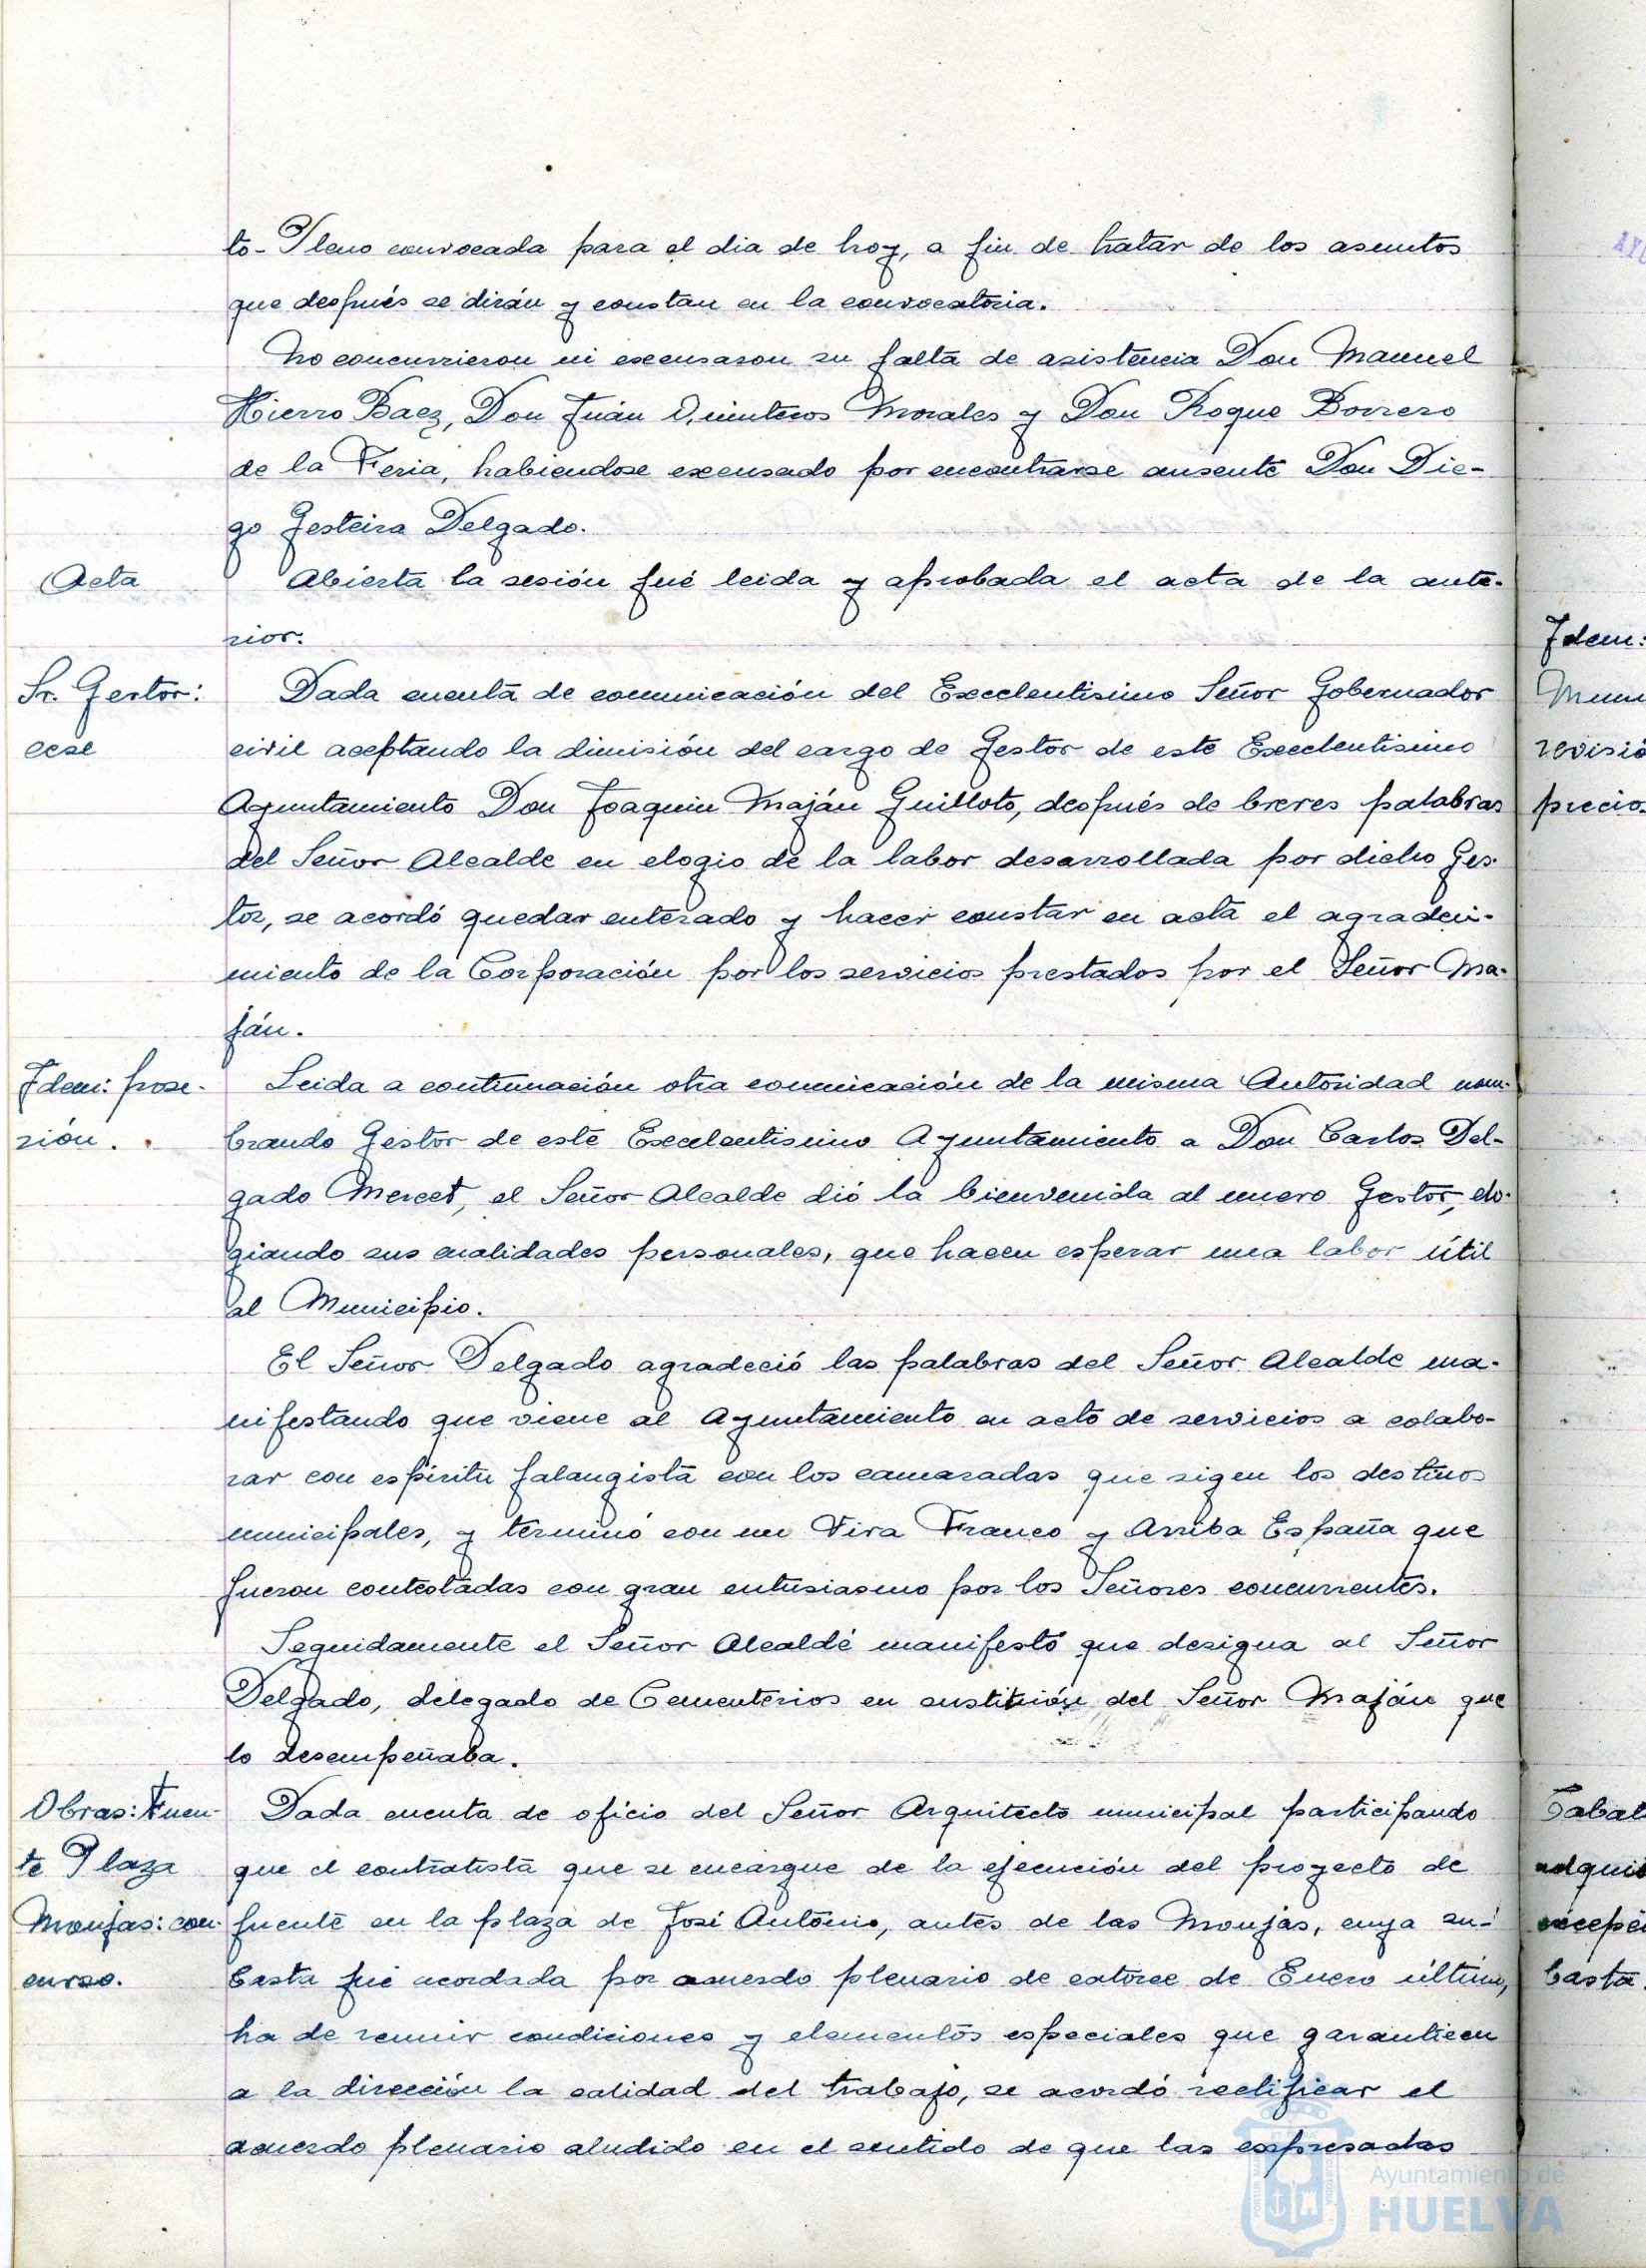 to-Pleno convocada para el dia de hoy, a fin de tratar de los asuntos
que después se dirán y constan en la convocatoria.
No concurrieron ni excusaron su falta de asistencia Don Manuel
Hierro Baez, Don Juán Quinteros Morales y Don Roque Borrero
de la Feria, habiendose excusado por encontrarse ausente Don Die-
go Gesteira Delgado.
Acta
Abierta la sesión fué leida y aprobada el acta de la ante-
rior.
Sr. Gestor:
cese
Dada cuenta de comunicación del Excelentisimo Señor Gobernador
civil aceptando la dimisión del cargo de Gestor de este Excelentisimo
Ayuntamiento Don Joaquin Maján Guilloto, después de breves palabras
del Señor Alcalde en elogio de la labor desarrollada por dicho Ges-
tor, se acordó quedar enterado y hacer constar en acta el agradeci-
miento de la Corporación por los servicios prestados por el Señor Ma-
ján.
Idem: pose-
sión.
Leida a continuación otra comunicación de la misma Autoridad nom-
brando Gestor de este Excelentisimo Ayuntamiento a Don Carlos Del-
gado Mercet, el Señor Alcalde dió la bienvenida al nuevo Gestor, elo-
giando sus cualidades personales, que hacen esperar una labor útil
al Municipio.
El Señor Delgado agradeció las palabras del Señor Alcalde ma-
nifestando que viene al Ayuntamiento en acto de servicios a colabo-
rar con espíritu falangista con los camaradas que rigen los destinos
municipales, y terminó con un Viva Franco y Arriba España que
fueron contestadas con gran entusiasmo por los Señores concurrentes.
Seguidamente el Señor Alcalde manifestó que designa al Señor
Delgado, delegado de Cementerios en sustitución del Señor Maján que
lo desempeñaba.
Obras: Fuen-
te Plaza
Monjas: con-
curso.
Dada cuenta de oficio del Señor Arquitecto municipal participando
que el contratista que se encargue de la ejecución del proyecto de
fuente en la plaza de José António, antes de las Monjas, cuya su-
basta fué acordada por acuerdo plenario de catorce de Enero último,
ha de reunir condiciones y elementos especiales que garanticen
a la dirección la calidad del trabajo, se acordó rectificar el
acuerdo plenario aludido en el sentido de que las expresadas
Idem:
Muni
revisió
precio
Tabal
adquis
excepci
basta.
AYU
Ayuntamiento de
HUELVA